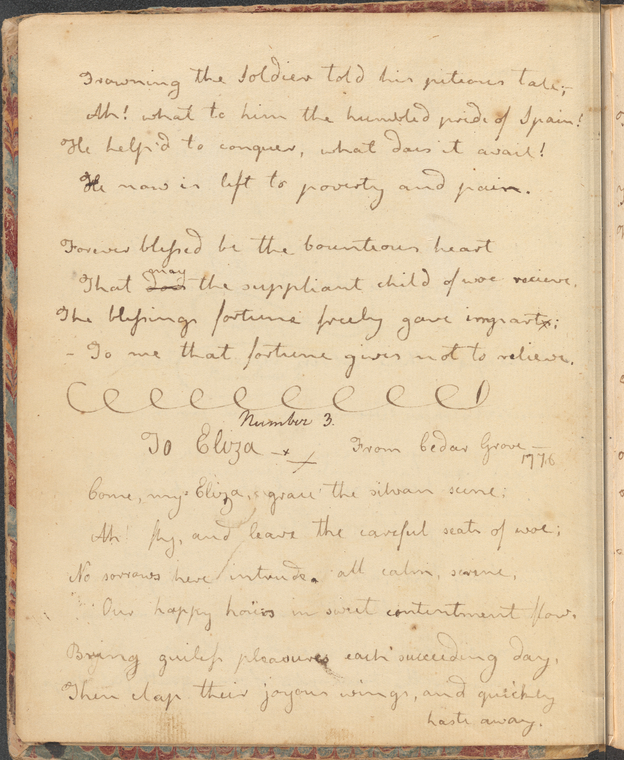 Frowning the Soldier told his piteous tale;
Ah! what to him the humbled pride of Spain!
He help'd to conquer, what does it avail!
He now is left to poverty and pain.
Forever blessed be the bounteous heart
may
That the suppliant child of woe recieve.
The blessings fortune freely gave impart;
- To me that fortune gives not to relieve.
Number 3.
To Eliza From Cedar Grove
1776
Come, my Eliza, grace the silvan scene;
Ah! fly, and leave the careful seats of woe;
No sorrows here intrude. all calm, serene,
Our happy hours in sweet contentment flow.
Bring guiless pleasures each succeeding day,
Then clap their joyous wings, and quickly
haste away.